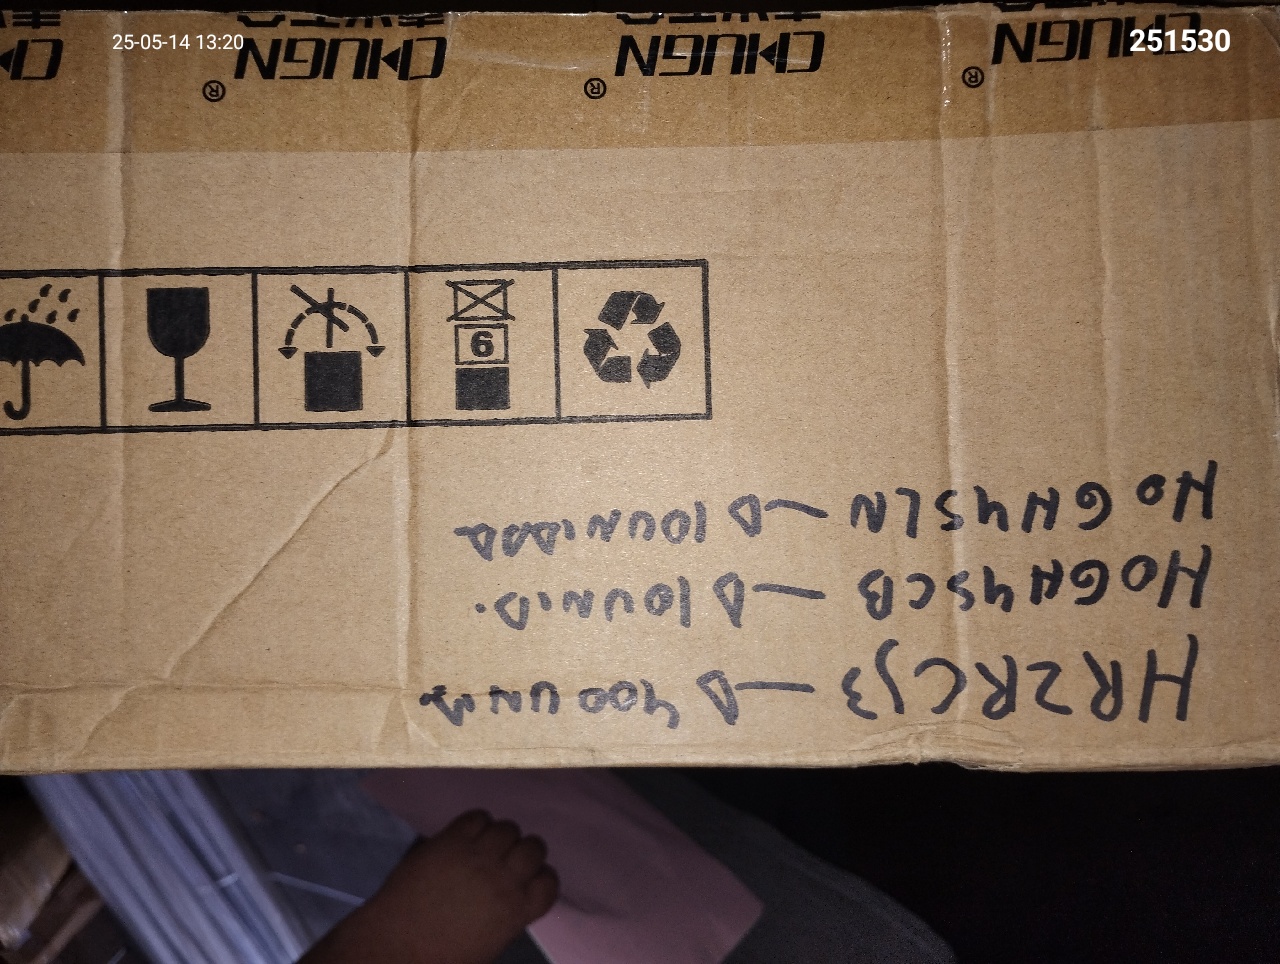 25-05-14 13:20
251530
6
HR2RCJ3 → 400 UNID
HOGH45CB → 10 UNID.
HOGH45LN → 10 UNIDAD